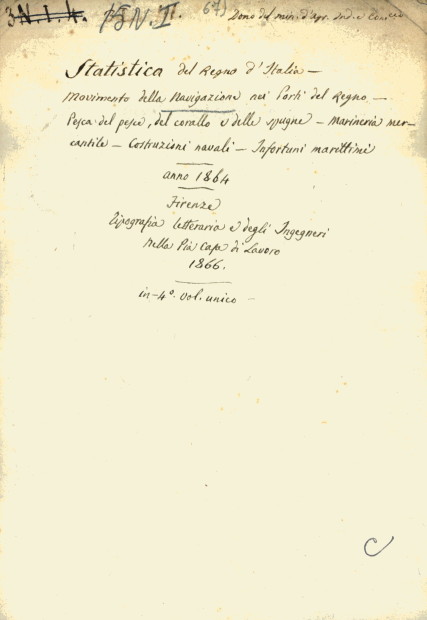 3 N. I. 4. 15 N. II. 67) Dono del min. d'Agr. Ind. e Comm.
Statistica del Regno d'Italia —
Movimento della Navigazione nei Porti del Regno —
Pesca del pesce, del corallo e delle spugne — Marineria mer-
cantile — Costruzioni navali — Infortuni marittimi
anno 1864
Firenze
Tipografia letteraria e degli Ingegneri
nella Pia Casa di Lavoro
1866.
in-4°. vol. unico —
C